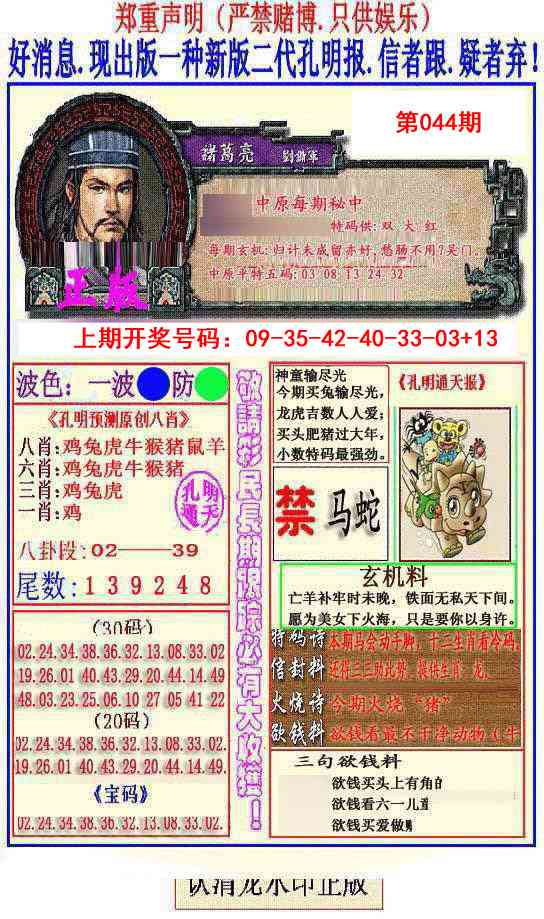 郑重声明（严禁赌博.只供娱乐）
好消息.现出版一种新版二代孔明报.信者跟.疑者弃！
第044期
諸葛亮
中原每期秘中
特码供: 双 大 红
每期玄机: 归计未成留亦好, 愁肠不用?吴门.
中原平特五码: 03 08 13 24 32
正版
上期开奖号码：09-35-42-40-33-03+13
波色：一波 防
《孔明预测原创八肖》
八肖:鸡兔虎牛猴猪鼠羊
六肖:鸡兔虎牛猴猪
三肖:鸡兔虎
一肖:鸡
孔明
通天
八卦段:02——39
尾数:139248
(30码)
02.24.34.38.36.32.13.08.33.02
19.26.01.40.43.29.20.44.14.49
48.03.23.25.06.10 27 05 41 22
(20码)
02.24.34.38.36.32.13.08.33.02.
19.26.01.40.43.29.20.44.14.49.
《宝码》
02.24.34.38.36.32.13.08.33.02.
敬請彩民長期跟踪必有大收獲！
神童输尽光
今期买兔输尽光，
龙虎吉数人人爱；
买头肥猪过大年，
小数特码最强劲。
《孔明通天报》
禁 马蛇
玄机料
亡羊补牢时未晚，铁面无私天下间。
愿为美女下火海，只是要你以身许。
特码诗 本期马会动手脚，十二生肖看冷码
信封料
火烧诗 今期火烧“猪”
欲钱料 欲钱看最不干净动物（牛
三句欲钱料
欲钱买头上有角的
欲钱看六一儿童
欲钱买爱做
认清龙水印正版